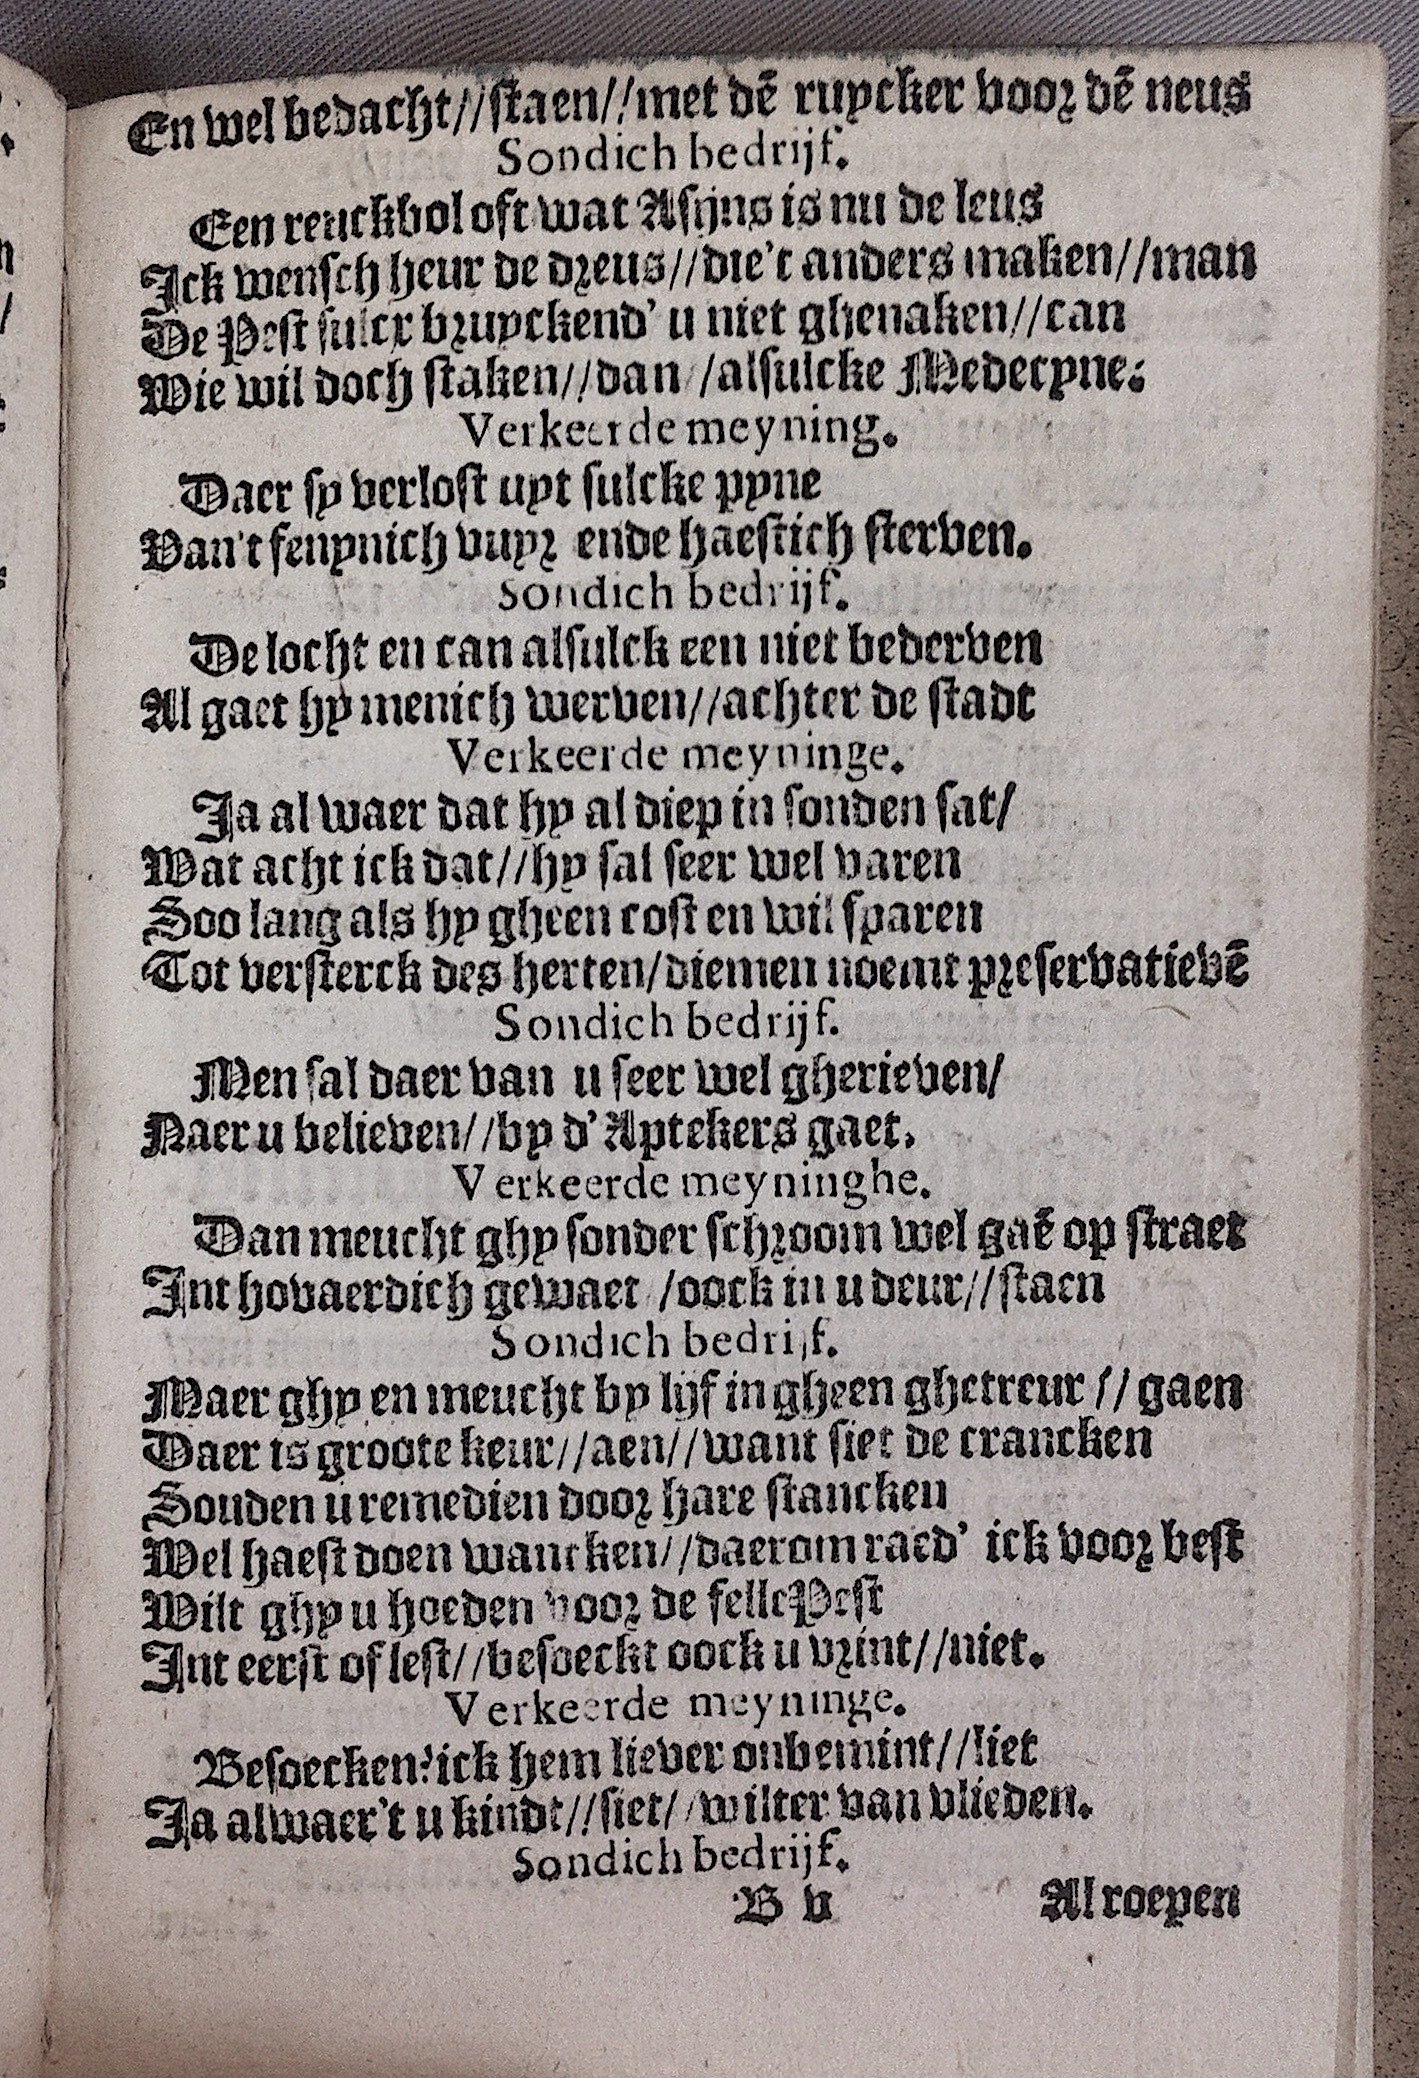 En wel bedacht//staen//met dē ruycker voor dē neus
Sondich bedrijf.
Een reuckbol oft wat Asijns is nu de leus
Ick wensch heur de dreus//die't anders maken//man
De Pest sulcx bruyckend' u niet ghenaken//can
Wie wil doch staken//dan /alsulcke Medecyne.
Verkeerde meyning.
Daer sy verlost uyt sulcke pyne
Van't fenynich vuyr ende haestich sterven.
Sondich bedrijf.
De locht en can alsulck een niet bederven
Al gaet hy menich werven//achter de stadt
Verkeerde meyninge.
Ja al waer dat hy al diep in sonden sat/
Wat acht ick dat//hy sal seer wel varen
Soo lang als hy gheen cost en wil sparen
Tot versterck des herten/diemen noemt preservatievē
Sondich bedrijf.
Men sal daer van u seer wel gherieven/
Naer u believen//by d'Aptekers gaet.
Verkeerde meyninghe.
Dan meucht ghy sonder schroom wel gaē op straet
Int hovaerdich gewaet /oock in u deur//staen
Sondich bedrijf.
Maer ghy en meucht by lijf in gheen ghetreur // gaen
Daer is groote keur//aen//want siet de crancken
Souden u remedien door hare stancken
Wel haest doen wancken//daerom raed' ick voor best
Wilt ghy u hoeden voor de felle Pest
Int eerst of lest//besoeckt oock u vrint//niet.
Verkeerde meyninge.
Besoecken? ick hem liever onbemint//liet
Ja alwaer't u kindt//siet//wilter van vlieden.
Sondich bedrijf.
B v Al roepen